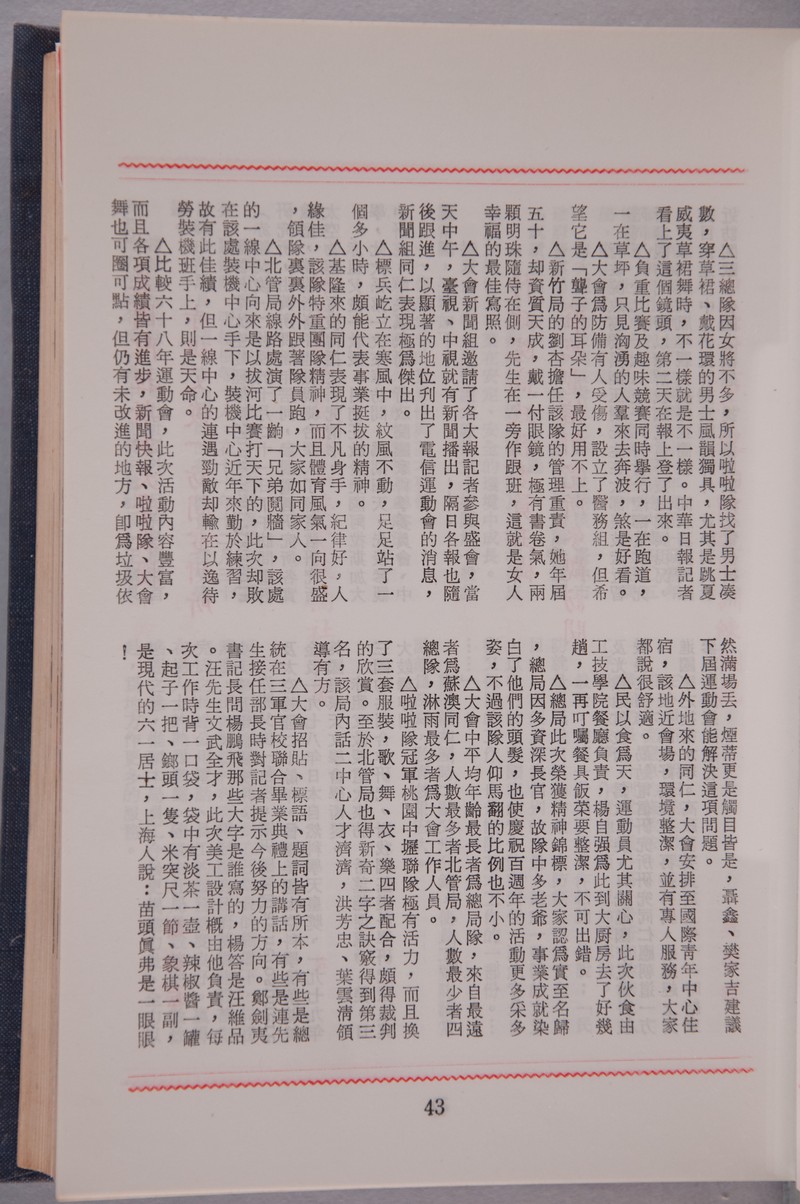 △三總隊因女將不多，所以啦啦隊找了男士湊
數，穿草裙、戴花環的男士風韻獨具，尤其是跳夏
威夷草裙舞時，不一樣就是不一樣。中華日報記者
看上了這個鏡頭，第二天在報上登了出來。
△負重比賽及趣味競賽同時舉行，一在跑道，
一在草坪，只見洶湧的人羣來去奔波，煞是好看。
△大會爲防備有人受傷，設立了醫務組，但希
望它是「聾子的耳朶」，最好用不上。
△新竹局的劉杏擔任該隊的管理重責，她年屆
五十，却資質天成，戴一付眼鏡，極有書卷氣，兩
顆明珠隨侍在側，先生在一旁作跟班，這就是女人
幸福的最佳寫照。
△大會新聞組邀請了各大報記者參與盛會，當
天中午，臺視、中視就有新聞播出，隔日各報也隨
後跟進，以顯著的地位刋出了電信運動會的消息，
新聞組同仁表現極爲傑出。
△標兵屹立在寒風中，紋風不動，足足站了一
個多小時，頗能代表事業挺拔的精神。
△基隆來的同仁表現了不凡身手，紀律好，人
緣佳，該隊特重團隊精神，而且體育風氣一向很盛
，領隊裏裏外外跟著隊員跑，大家如同家人。
△北管局線路處演了一齣「兄弟鬩牆」，該處
的一線中心向來是以拔河比賽打天下的，此次却敗
在該處裝機中心手下，裝機中心近年來勤於練習，
故有此佳績，但一線中心的連遇勁敵却輸在以逸待
勞裝機班手上，則是天命。
△比較六十八年運動會，此次活動內容豐富，
而且各項成績皆有進步，新聞快報、啦啦隊、大會
舞也可圈可點，但仍有未改進的地方，卽爲垃圾依
然滿場丟，煙蒂更是觸目皆是，聶鑫、樊家吉建議
下屆運動會能解決這項問題。
△外地來的同仁，大會安排至國際靑年中心住
宿，該地近會場，環境整潔，並有專人服務，大家
都說很舒適。
△民以食爲天，運動員尤其關心，此次伙食由
工技學院餐廳負責，楊自强爲此到大厨房去了好幾
趟，一再叮囑餐具飯菜要整潔，不可出錯。
△總局此次榮獲精神錦標，大家認爲實至名歸
，總局因多資深長官，故隊中多老爺，事業成就染
白了他們的頭髮，也使慶祝百週年的活動更多采多
姿，不過該隊人仰馬翻的比例也不小。
△大會中平均年齡最長者爲總局隊，來自最遠
者爲蘇澳同仁，人數最多者北管局，人數最少者四
總隊，淋雨最多者爲大會工作人員。
△啦啦隊冠軍桃園中壢聯隊極有活力，而且換
了三套服裝，歌、舞、衣、樂四者配合，頗得裁判
的欣賞。至於北管局也得新奇二字之訣竅得到第三
名，該局內話二中心人才濟濟，洪芳忠、葉雲淸領
導有方。
△大會招貼、標語、題詞皆有所本，有些是總
統在三軍官校聯合畢業典禮上的講話，有些是連先
生接任部長時對記者提示今後努力的方向。鄭劍夷
書記長問楊鵬飛那些大字是誰寫的，楊答是汪維品
。汪先生文武全才，此次美工設計槪由他負責，每
次工作時背一口袋，袋中有淡茶一壺、辣椒醬一罐
、起子一把、鎯頭一隻、米突尺一節、象棋一副，
是現代的六一居士，上海人說：苗頭眞弗是一眼眼
！
43